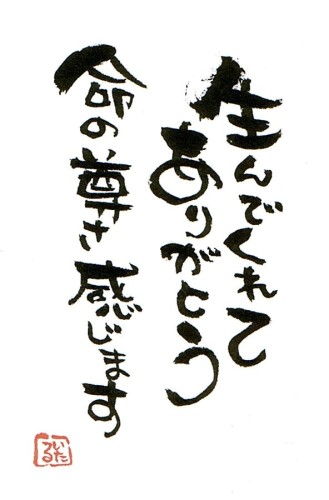 生んでくれて
ありがとう
命の尊さ感じます
いたる